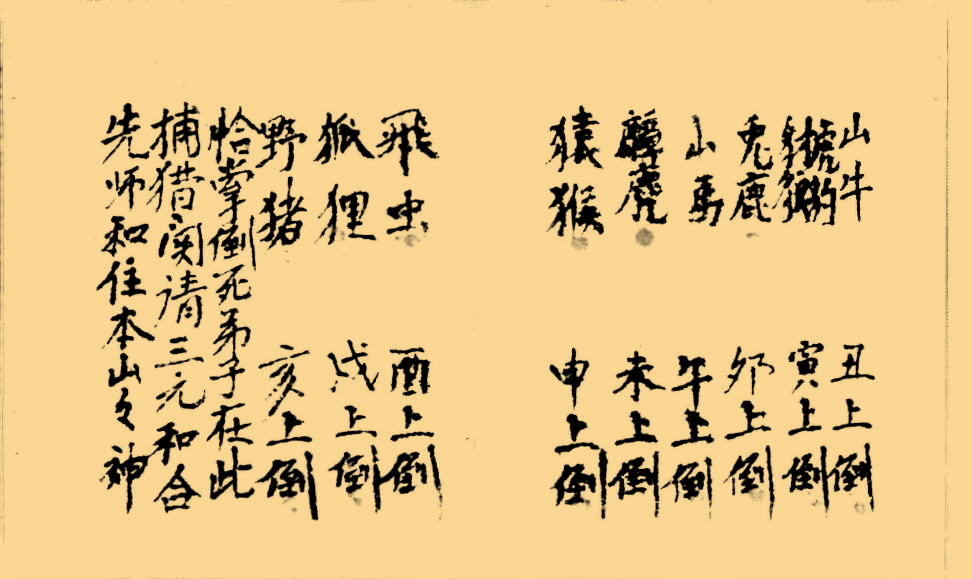 山牛 丑上倒
虎豹 寅上倒
兎鹿 卯上倒
山馬 午上倒
獐麂 未上倒
猿猴 申上倒
飛虫 酉上倒
狐狸 戌上倒
野猪 亥上倒
恰掌倒死弟子在此
捕猎関请三元和合
先师和住本山々神